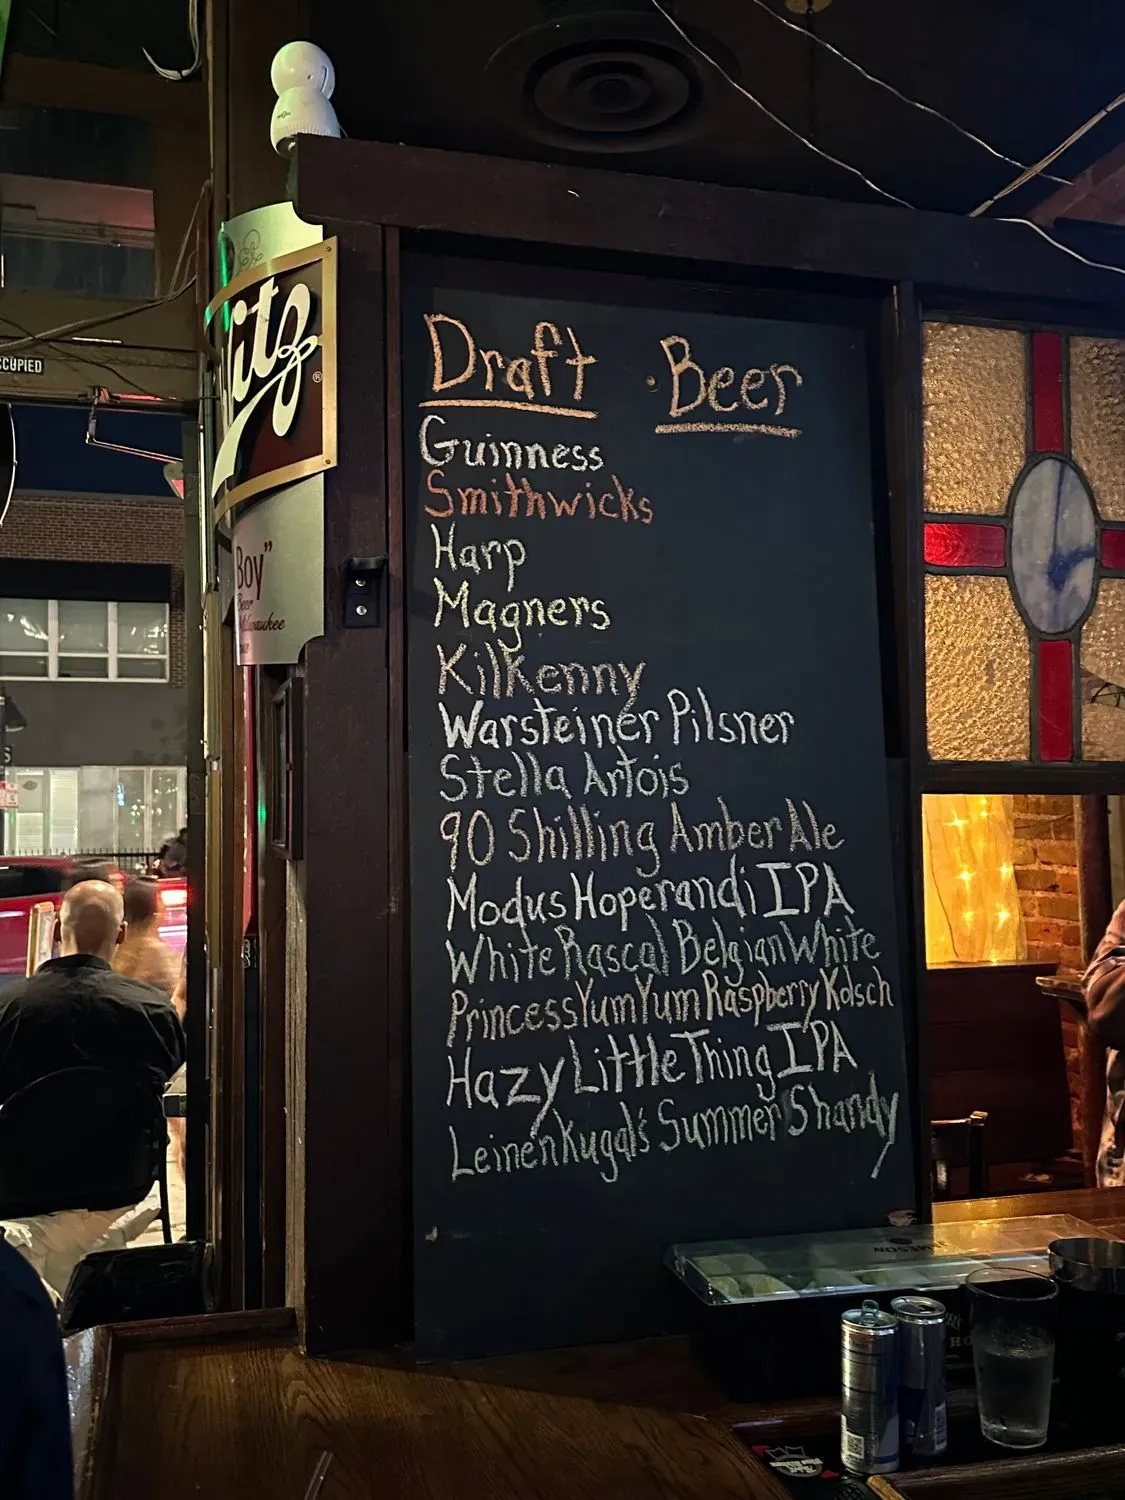 Draft Beer
Guinness
Smithwicks
Harp
Magners
Kilkenny
Warsteiner Pilsner
Stella Artois
90 Shilling Amber Ale
Modus Hoperandi IPA
White Rascal Belgian White
Princess Yum Yum Raspberry Kolsch
Hazy Little Thing IPA
Leinenkugal's Summer Shandy
litz
®
Boy"
Beer
CUPIED
JAMESON